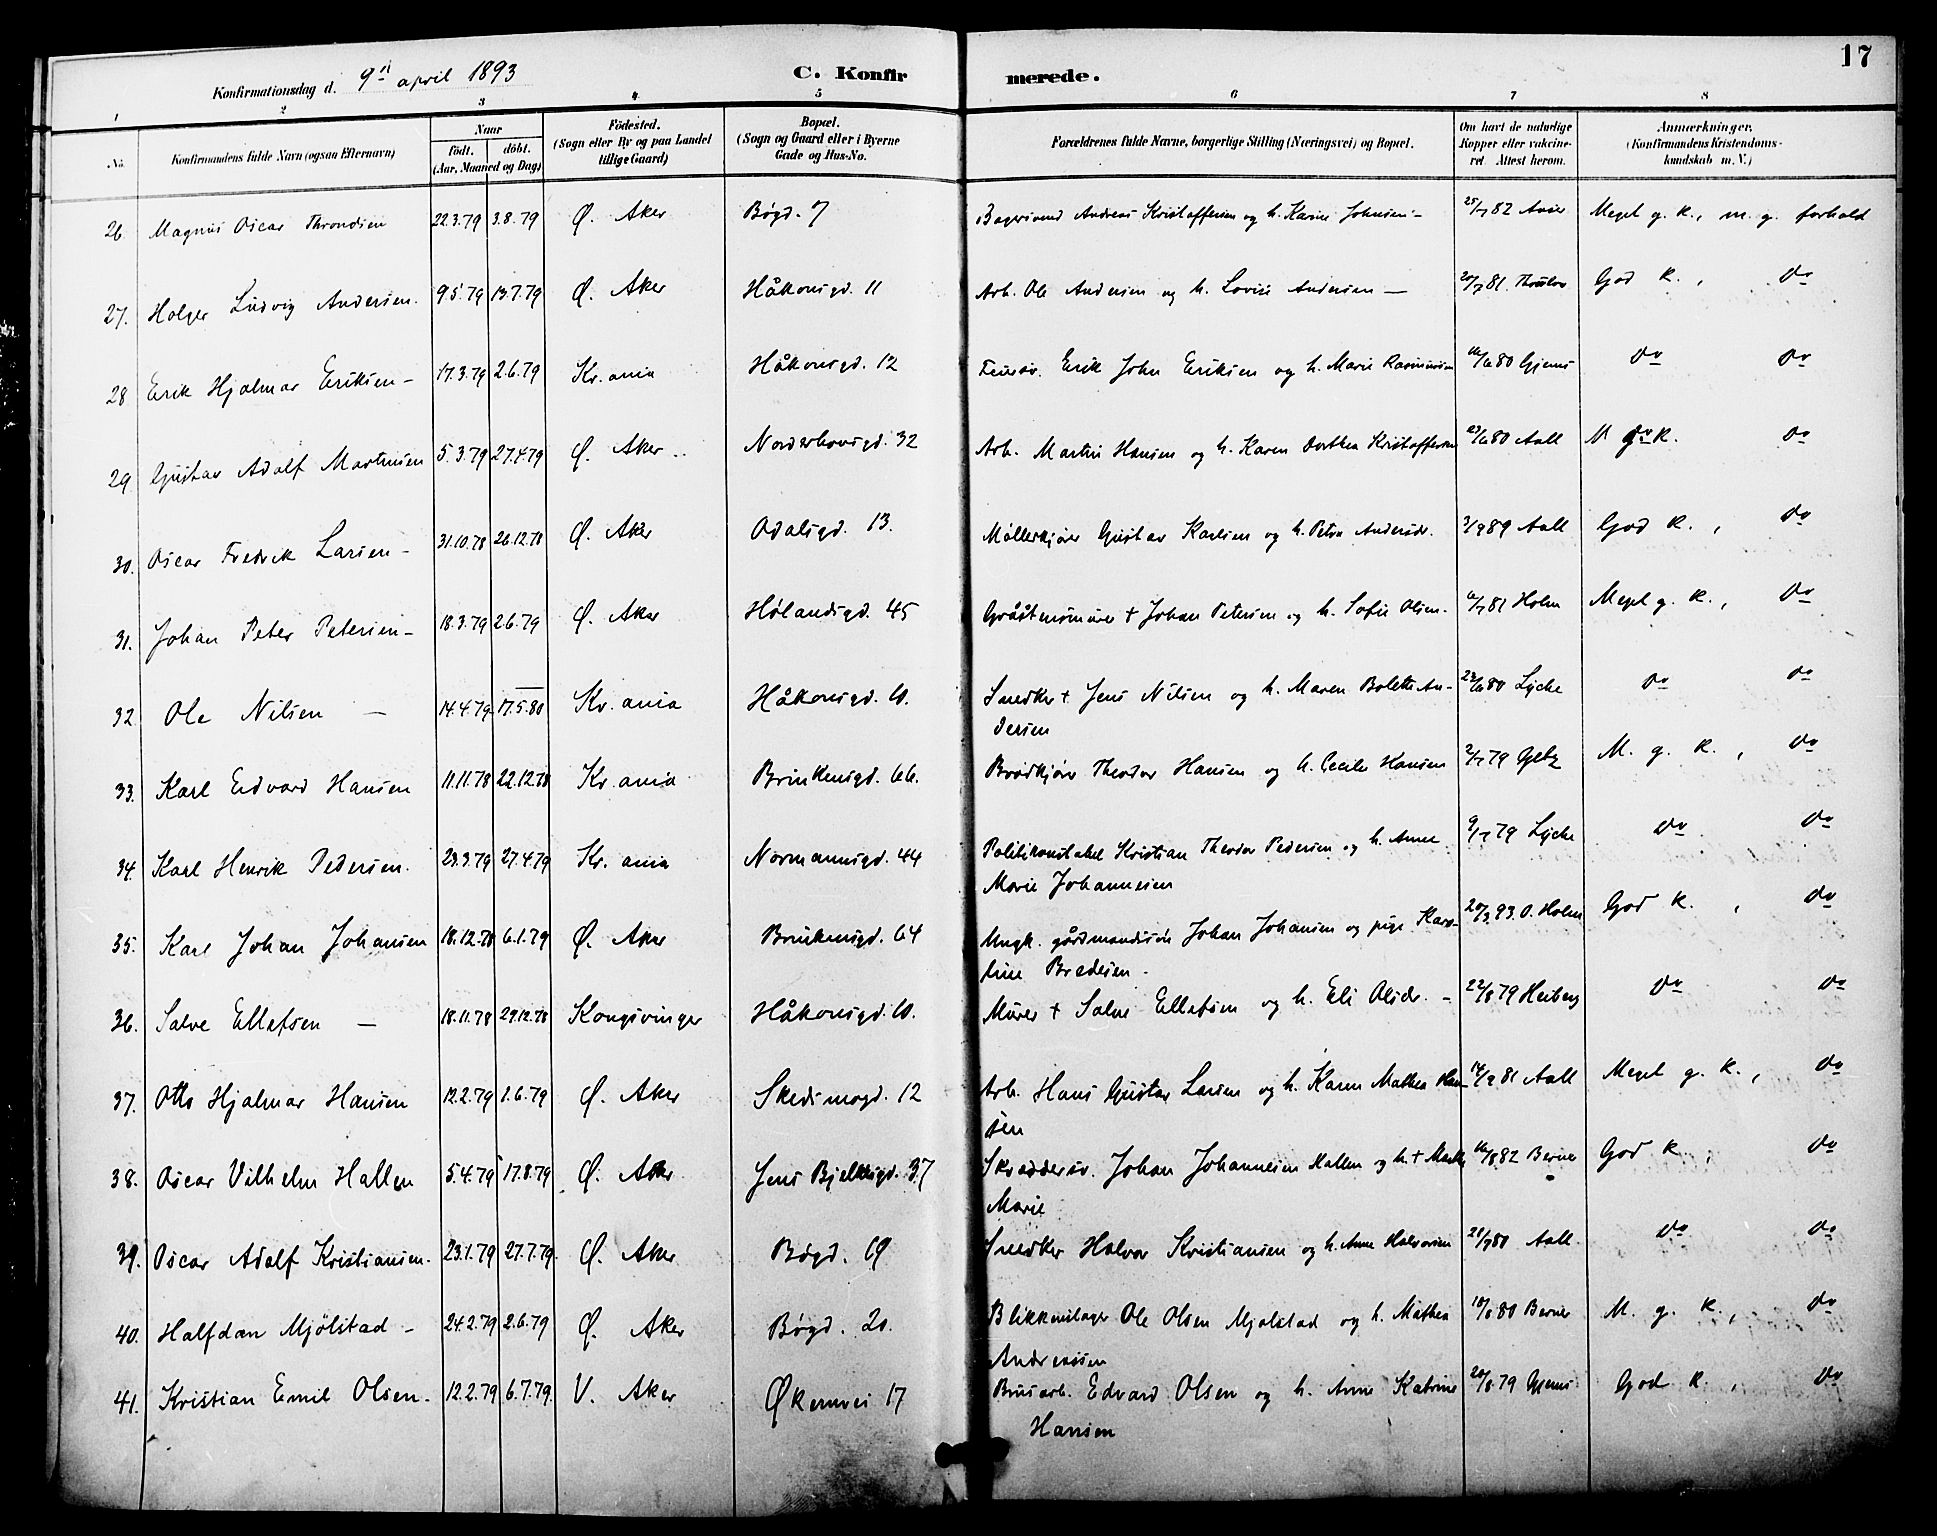 17
Konfirmationsdag d. 9de april 1893 C. Konfirmerede.
1 2 3 4 5 6 7 8
No. Konfirmandens fulde Navn (ogsaa Efternavn) Naar födt. döbt. (Aar, Maaned og Dag) Födested. (Sogn eller By og paa Landet tillige Gaard) Bopæl. (Sogn og Gaard eller i Byerne Gade og Hus-No.) Forældrenes fulde Navne, borgerlige Stilling (Næringsvei) og Bopæl. Om havt de naturlige Kopper eller vakcineret. Attest herom. Anmærkninger. (Konfirmandens Kristendomskundskab m. V.)
26. Magnus Oscar Throndsen 22.3.79 3.8.79 Ø. Aker Bøgd. 7 Bagersvend Andreas Kristoffersen og h. Karine Johnsen - 25/7 82 Meget g. k., m. g. forhold
27. Holger Ludvig Andersen. 9.5.79 13.7.79 Ø. Aker Håkonsgd. 11 Arb. Ole Andersen og h. Lovise Andersen — 20/7 81 God k., do
28 Erik Hjalmar Eriksen - 17.3.79 2.6.79 Kr.ania Håkonsgd. 12 Erik John Eriksen og h. Marie Rasmussen 80 Gjems do do
29. Gustav Adolf Martinsen 5.3.79 27.4.79 Ø. Aker Norderhovsgd. 32 Arb. Martin Hansen og h. Karen Dorthea Kristoffersen 23/6 80 Aall M g. k. do
30. Oscar Fredrik Larsen - 31.10.78 26.12.78 Ø. Aker Odalsgd. 13. Møllerkjører Gustav Karlsen og h. Petra Andersdr. 3/9 89 Aall God k., do
31. Johan Peter Petersen - 18.3.79 2.6.79 Ø. Aker Hølandsgd. 45 Gråstensmurer + Johan Petersen og h. Sofie Olsen. 81 Holm Meget g. k., do
32 Ole Nilsen — 14.4.79 17.5.80 Kr.ania Håkonsgd. 10. Snedker + Jens Nilsen og h. Maren Bolette An-
dersen 23/6 80 Lyche do do
33. Karl Edvard Hansen 11.11.78 22.12.78 Kr.ania Brinkensgd. 66. Brødkjører Theodor Hansen og h. Cecilie Hansen 2/7 79 Getz M. g. k., do
34. Karl Henrik Pedersen. 23.3.79 27.4.79 Kr.ania Normannsgd. 44 Politikonstabel Kristian Theodor Pedersen og h. Anne
Marie Johannesen 9/7 79 Lyche do do
35. Karl Johan Johansen 18.12.78 6.1.79 Ø. Aker Brinkensgd. 64 Ungk. gårdmandssøn Johan Johansen og pige Karo-
line Bredesen - 20/3 93. O. Holm God k., do
36. Salve Ellefsen — 18.11.78 29.12.78 Kongsvinger Håkonsgd. 10. Murer + Salve Ellefsen og h. Eli Olsdr. - 22/8 79 Heiberg do do
37. Otto Hjalmar Hansen 12.2.79 1.6.79 Ø. Aker Skedsmogd. 12 Arb. Hans Gustav Larsen og h. Karen Mathea Han-
sen 14/9 81 Aall Meget g. k., do
38. Oscar Vilhelm Hallen 5.4.79 17.8.79 Ø. Aker Jens Bjelkesgd. 37 Skræddersv. Johan Johannesen Hallen og h. +
Marie 82 Berner God k., do
39. Oscar Adolf Kristiansen. 23.1.79 27.7.79. Ø. Aker Bøgd. 69 Snedker Halvor Kristiansen og h. Anne Halvorsen 21/9 80 Aall. do do
40. Halfdan Mjølstad - 24.2.79 2.6.79 Ø. Aker Bøgd. 20. Blikkenslager Ole Olsen Mjølstad og h. Mathea
Andreassen 18/8 80 Berner M. g. k., do
41. Kristian Emil Olsen. 12.2.79 6.7.79. V. Aker Økernvei 17 Brusarb. Edvard Olsen og h. Anne Katrine
Hansen 20/8 79 Gjems God k., do